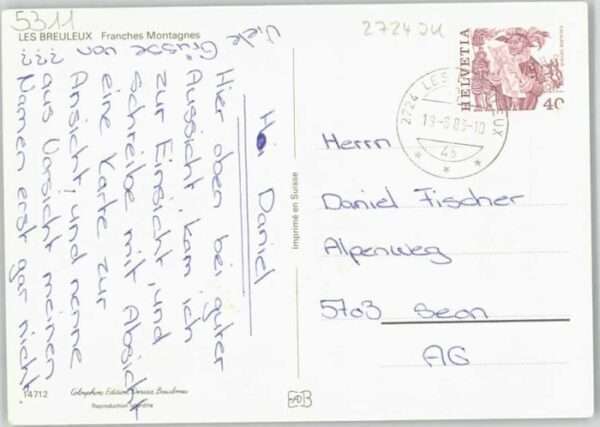 5311
LES BREULEUX Franches Montagnes
Hoi Daniel
Hier oben bei guter
Aussicht, kam ich
zur Einsicht, und
schreibe mit Absicht
eine Karte zur
Ansicht, und nenne
aus Vorsicht meinen
Namen erst gar nicht
Viele Grüsse von ???
14712
Reproduction interdite
Imprimé en Suisse
2724 JU
HELVETIA
40
2724 LES BREULEUX
19-8 83-10
Herrn
Daniel Fischer
Alpenweg
5703 Seon
AG